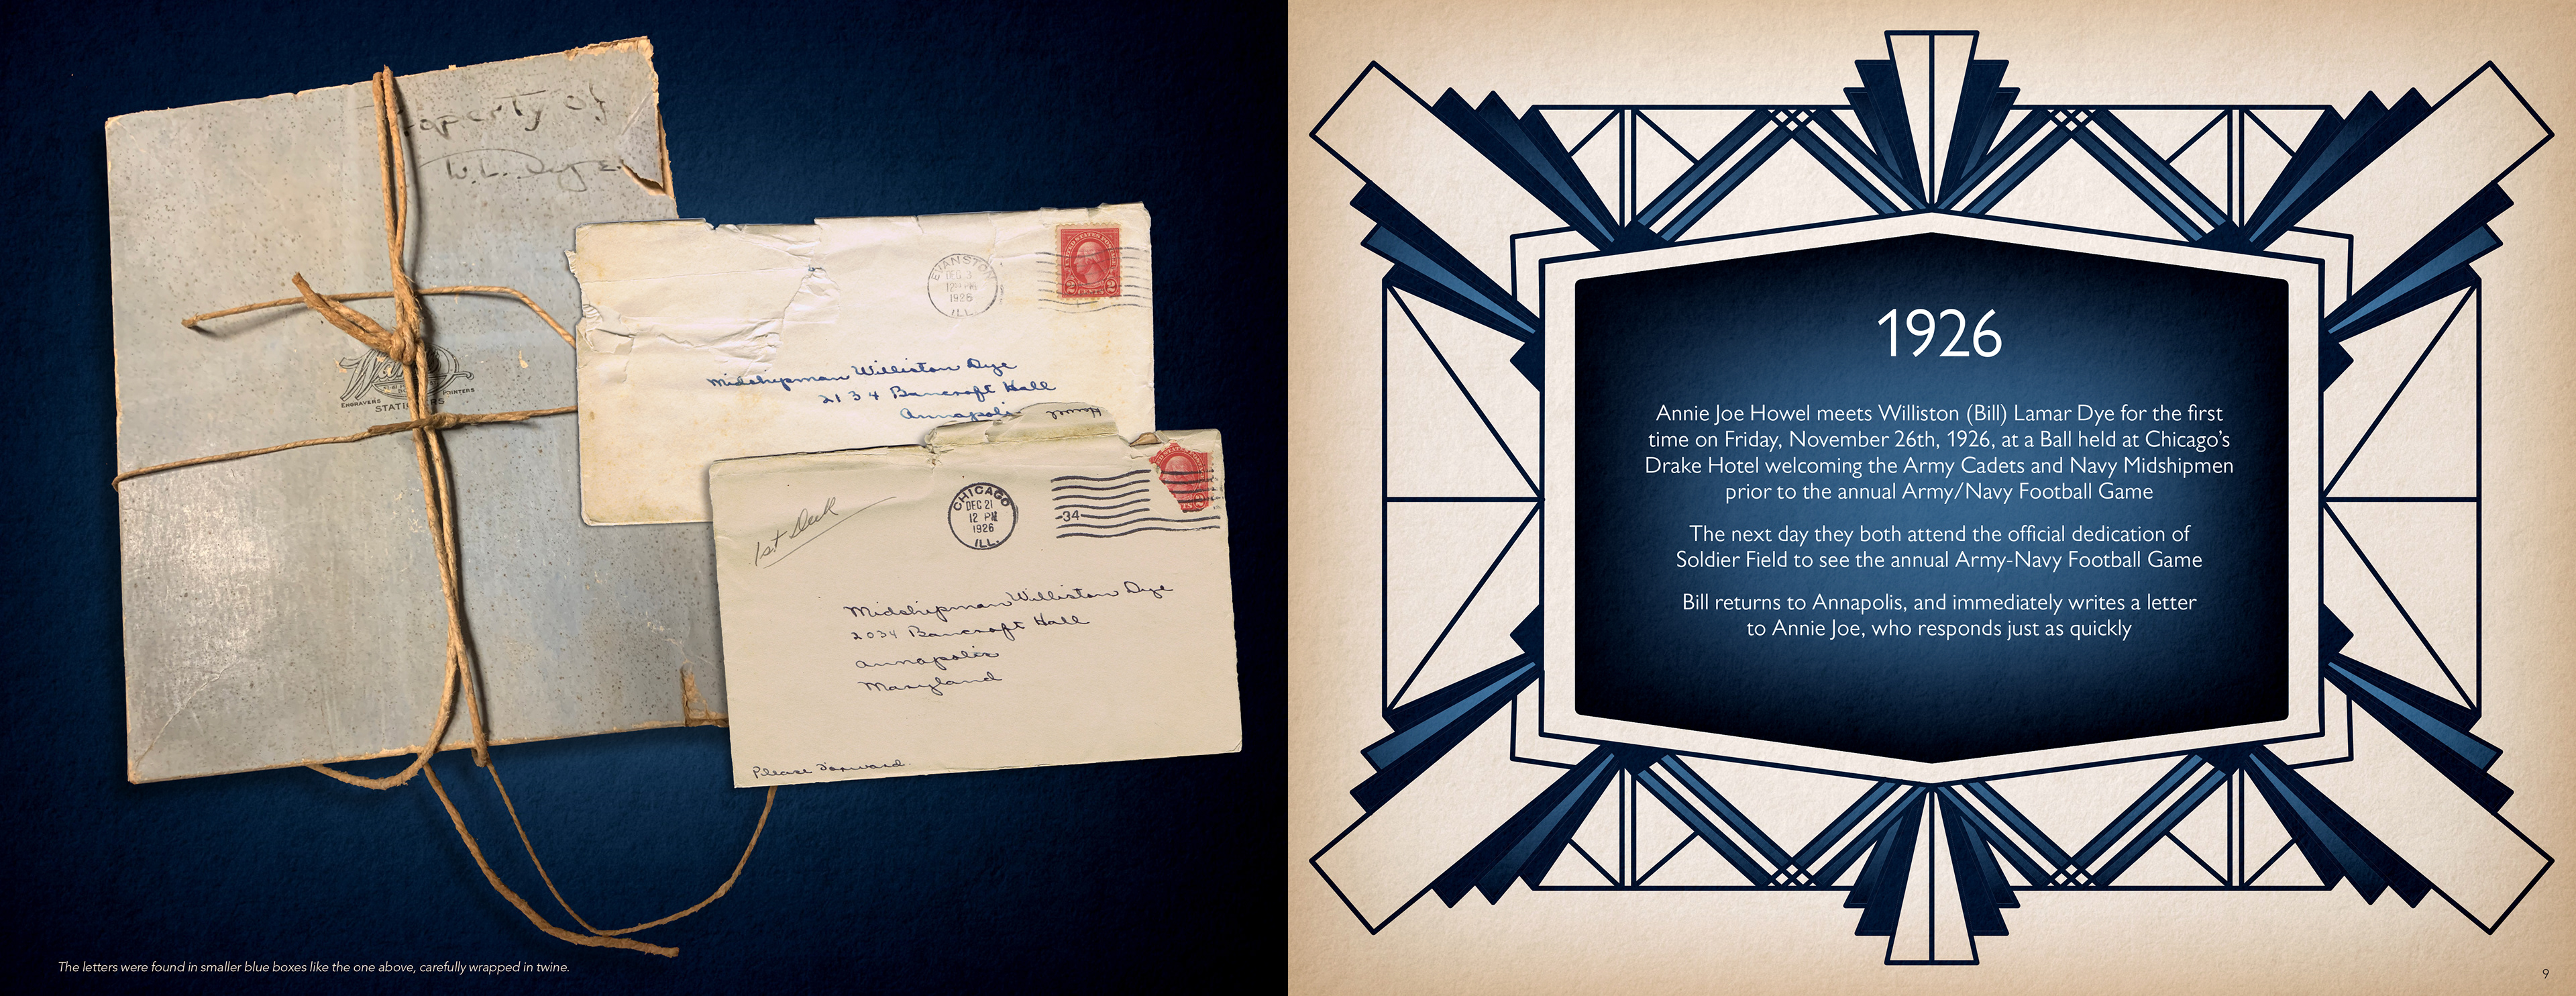 Property of
W. L. Dye
ENGRAVERS
POINTERS
EVANSTON
DEC 3
12
1926
ILL.
UNITED STATES POSTAGE
2 CENTS 2
Midshipman Williston Dye
2134 Bancroft Hall
Annapolis
1st Deck
CHICAGO
DEC 21
12 PM
1926
ILL.
34
Midshipman Williston Dye
2034 Bancroft Hall
Annapolis
Maryland
Please Forward.
The letters were found in smaller blue boxes like the one above, carefully wrapped in twine.
1926
Annie Joe Howel meets Williston (Bill) Lamar Dye for the first
time on Friday, November 26th, 1926, at a Ball held at Chicago’s
Drake Hotel welcoming the Army Cadets and Navy Midshipmen
prior to the annual Army/Navy Football Game
The next day they both attend the official dedication of
Soldier Field to see the annual Army-Navy Football Game
Bill returns to Annapolis, and immediately writes a letter
to Annie Joe, who responds just as quickly
9